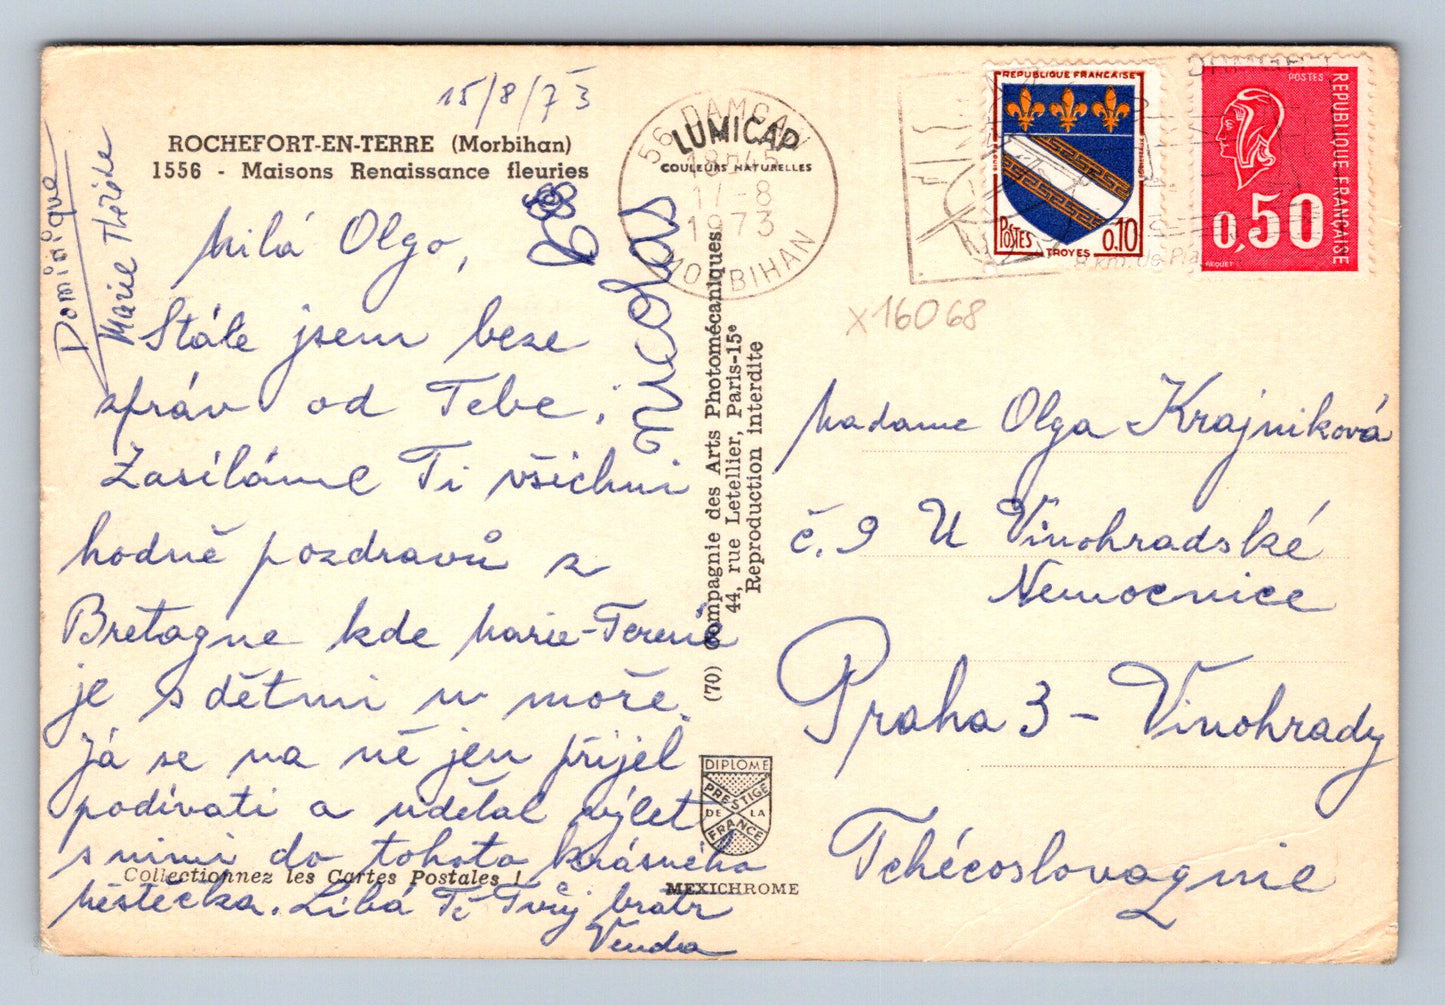 15/8/73
ROCHEFORT-EN-TERRE (Morbihan)
1556 - Maisons Renaissance fleuries
Dominique
Marie Thérèse
Nicolas
Milá Olgo,
Stále jsem beze
zpráv od Tebe,
Zasíláme Ti všichni
hodně pozdravů z
Bretagne kde Marie-Terenie
je s dětmi u moře.
Já se na ně jen přijel
podívati a udělal výlet
s nimi do tohoto krásného
městečka. Líbá Tě Tvůj bratr
Venda
Collectionnez les Cartes Postales !
LUMICAP
COULEURS NATURELLES
56 DAMGAN
18H45
17-8
1973
MORBIHAN
(70) Compagnie des Arts Photomécaniques
44, rue Letellier, Paris-15e
Reproduction interdite
DIPLOME
PRESTIGE
DE LA
FRANCE
MEXICHROME
REPUBLIQUE FRANCAISE
POSTES
0,10
TROYES
POSTES
REPUBLIQUE FRANCAISE
0,50
PAQUET
DAMGAN
km. de Pla
x16068
Madame Olga Krajníková
č. 9 U Vinohradské
Nemocnice
Praha 3 - Vinohrady
Tchécoslovaquie